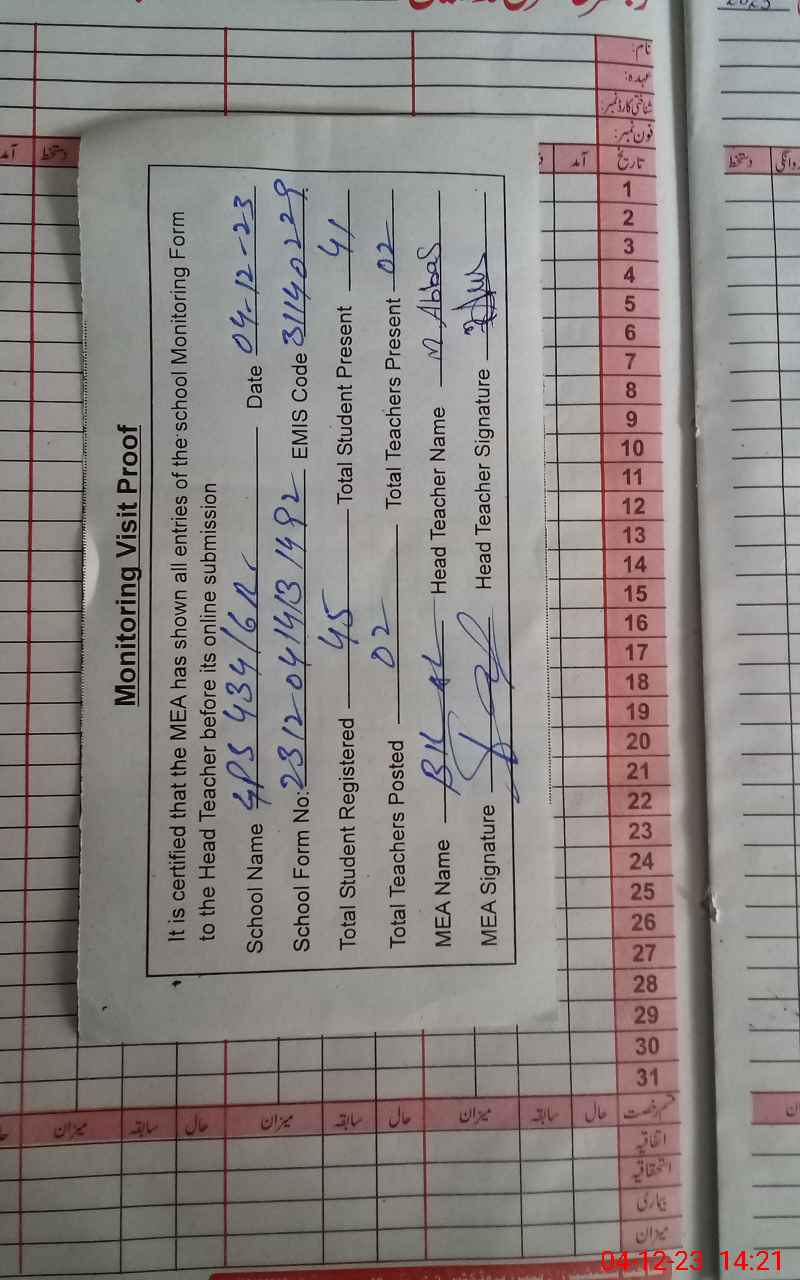 Monitoring Visit Proof
It is certified that the MEA has shown all entries of the school Monitoring Form
to the Head Teacher before its online submission
School Name GPS 434/6R. Date 04-12-23
School Form No: 23120414131492 EMIS Code 31140229
Total Student Registered 45 Total Student Present 41
Total Teachers Posted 02 Total Teachers Present 02
MEA Name Head Teacher Name M. Abbas
MEA Signature Head Teacher Signature
نام:
عہدہ:
شناختی کارڈ نمبر:
فون نمبر:
تاریخ آمد دستخط آمد
دستخط روانگی
1
2
3
4
5
6
7
8
9
10
11
12
13
14
15
16
17
18
19
20
21
22
23
24
25
26
27
28
29
30
31
قسم رخصت حال سابقہ میزان حال سابقہ میزان حال سابقہ میزان
اتفاقیہ
استحقاقیہ
بیماری
میزان
04-12-23 14:21